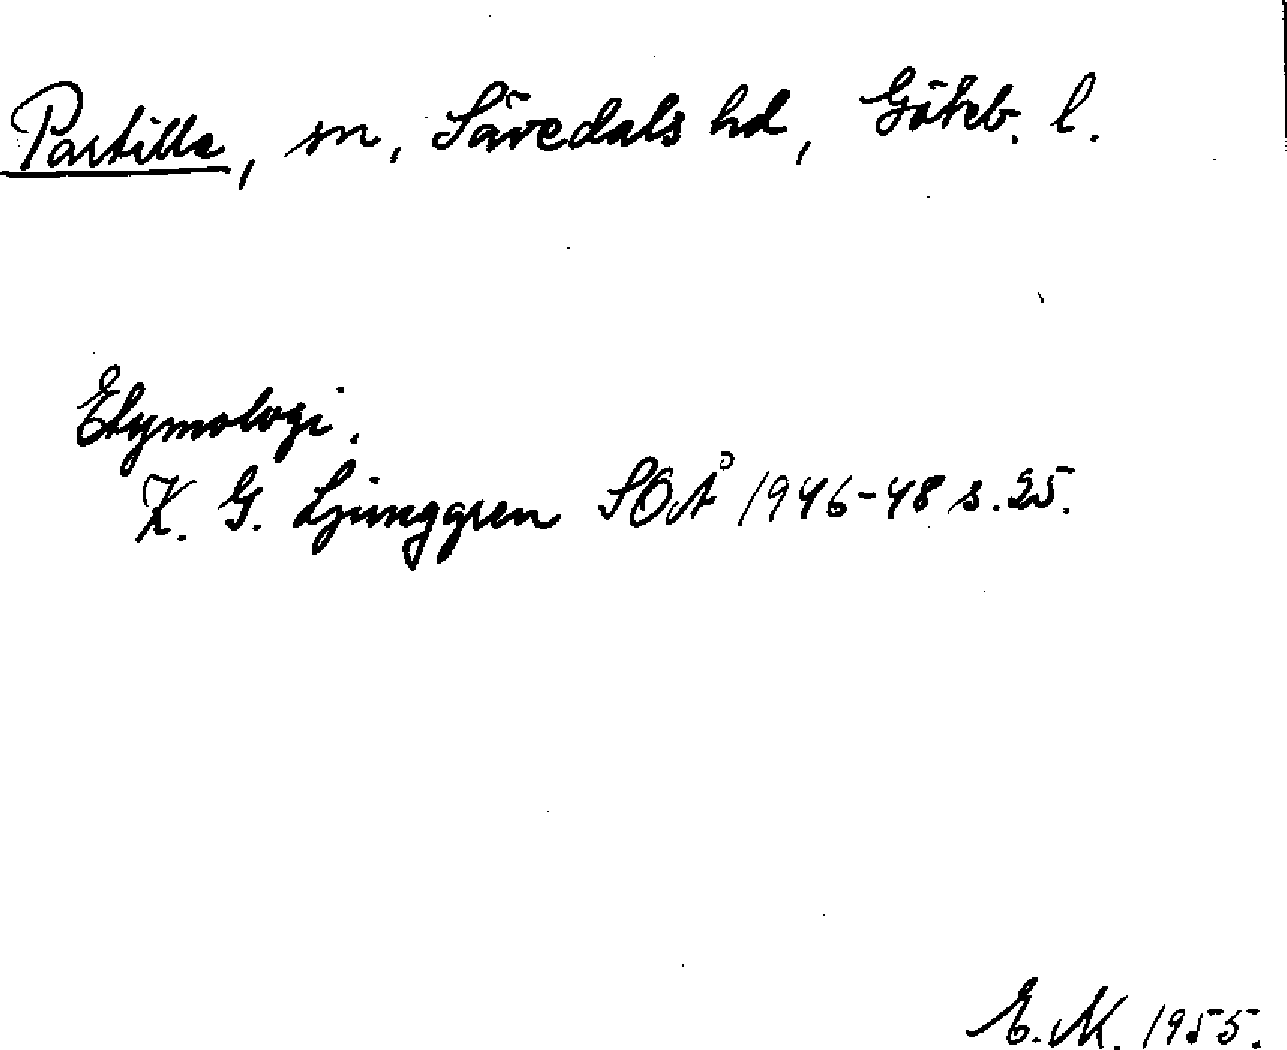 Partille, sn, Sävedals hd, Göteb. l.
Etymologi.
K. G. Ljunggren SOÅ 1946-48 s. 25.
E. M. 1955.